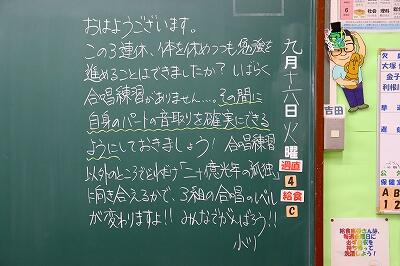 おはようございます。
この3連休、体を休めつつも勉強を
進めることはできましたか?しばらく
合唱練習がありません…。その間に
自身のパートの音取りを確実にできる
ようにしておきましょう!合唱練習
以外のところでどれほど「二十億光年の孤独」
に向き合えるかで、3組の合唱のレベル
が変わりますよ!!みんなでがんばろう!!
九月十六日火曜
週直
4
給食
C
吉田
欠席
大塚
金子
利根川
早退
遅
保健室
A
B
1
2
給食当番さんは、
毎週金曜日に
必ず白衣を
持ち帰って
洗濯しよう!